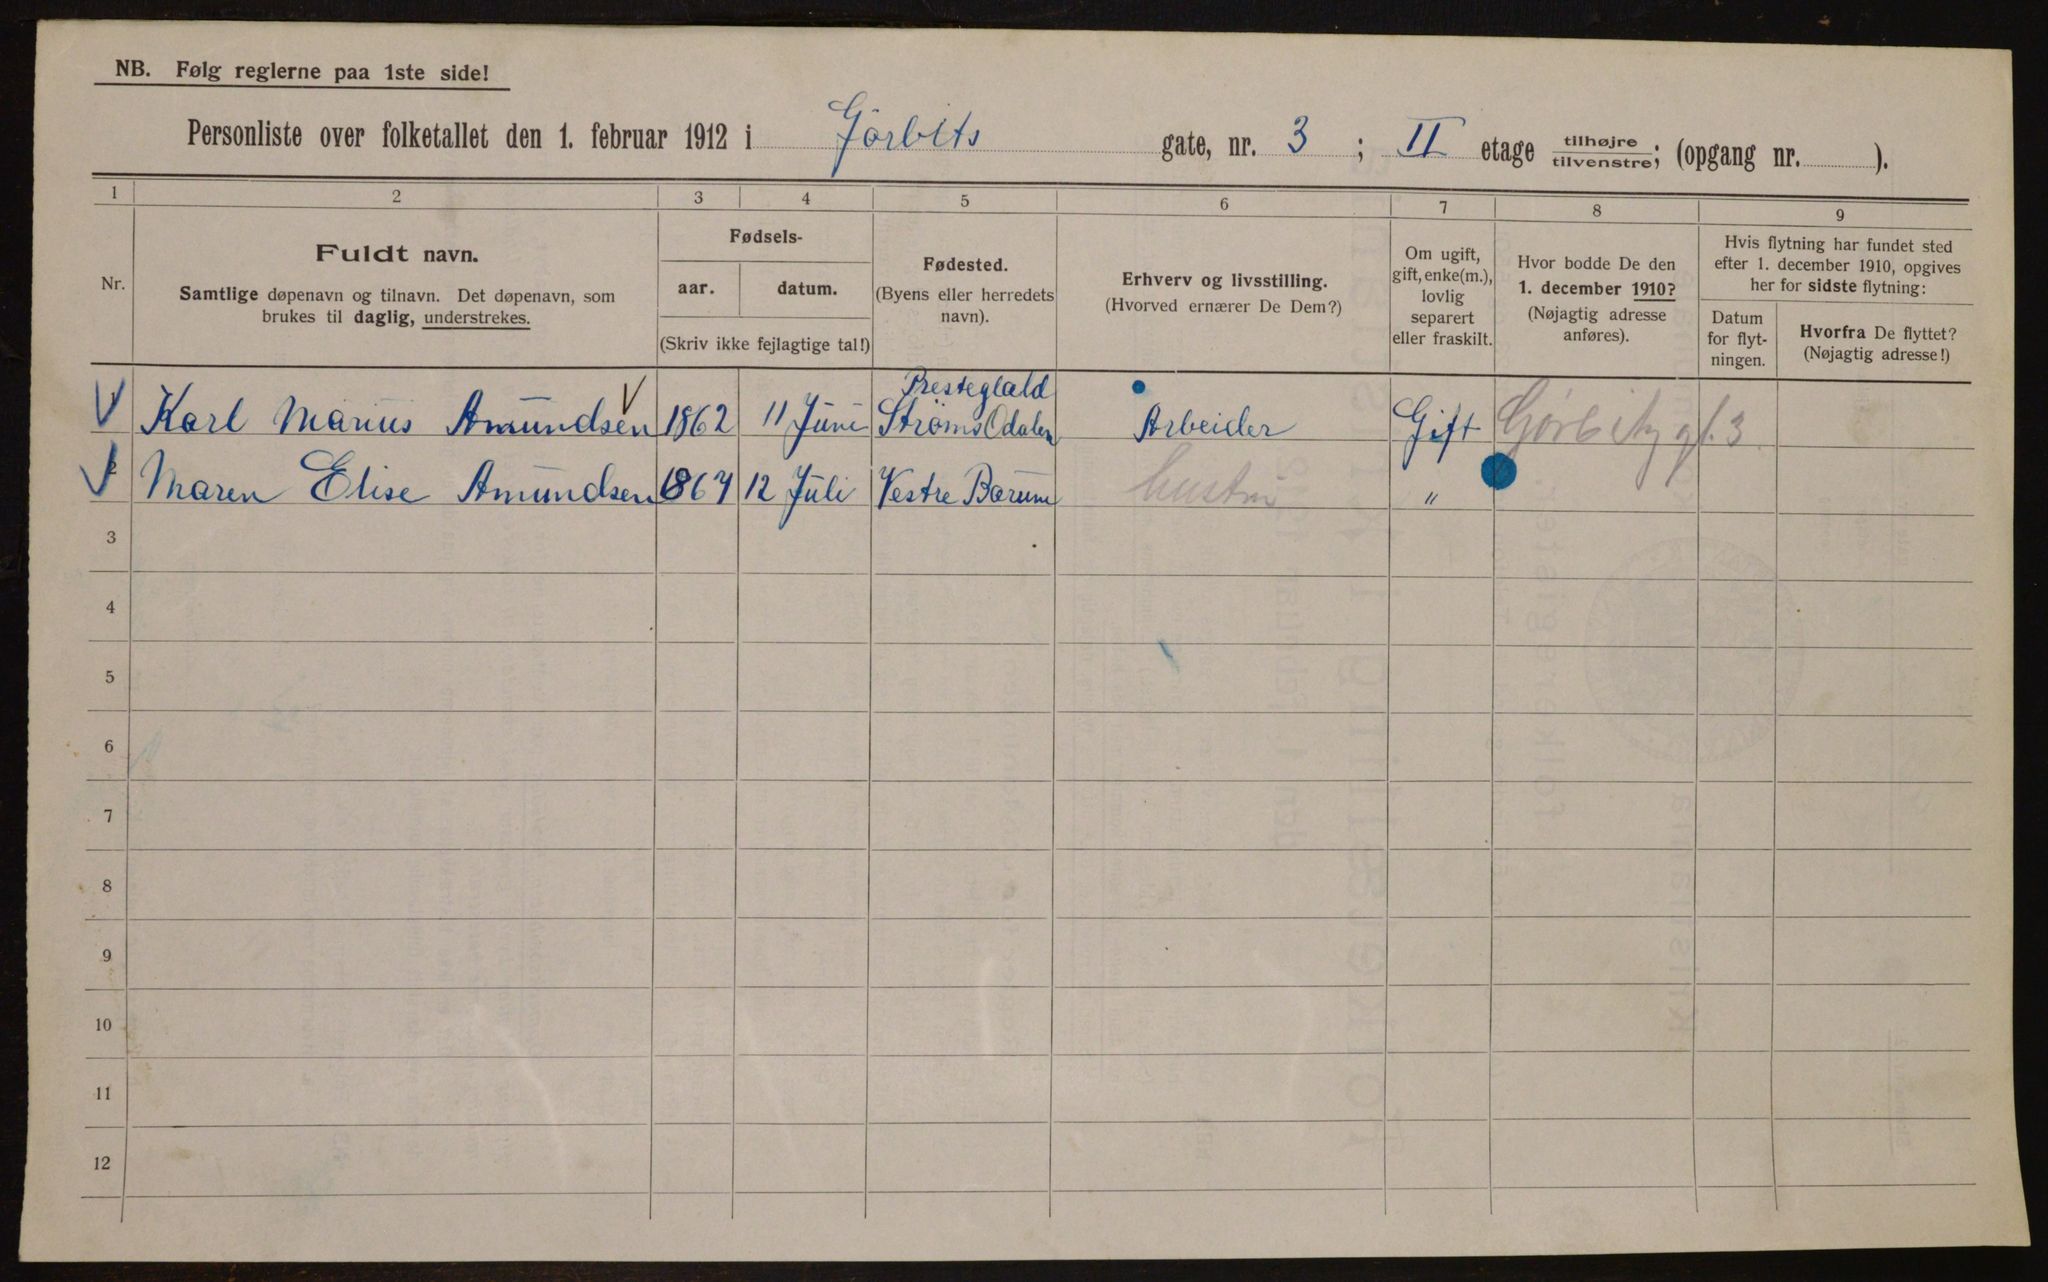 NB. Følg reglerne paa 1ste side!
Personliste over folketallet den 1. februar 1912 i Gjørbits gate, nr. 3 ; II etage tilhøjre/tilvenstre; (opgang nr. ).
1 2 3 4 5 6 7 8 9
Nr.
Fuldt navn.
Samtlige døpenavn og tilnavn. Det døpenavn, som
brukes til daglig, understrekes.
Fødsels-
aar. datum.
(Skriv ikke fejlagtige tal!)
Fødested.
(Byens eller herredets
navn).
Erhverv og livsstilling.
(Hvorved ernærer De Dem?)
Om ugift,
gift, enke(m.),
lovlig
separert
eller fraskilt.
Hvor bodde De den
1. december 1910?
(Nøjagtig adresse
anføres).
Hvis flytning har fundet sted
efter 1. december 1910, opgives
her for sidste flytning:
Datum
for flyt-
ningen.
Hvorfra De flyttet?
(Nøjagtig adresse!)
Prestegjæld
Karl Marius Amundsen 1862 11 Juni Strøms Odalen Arbeider Gift Gørbitz gt. 3
2 Maren Elise Amundsen 1864 12 Juli Vestre Bærum hustru "
3
4
5
6
7
8
9
10
11
12